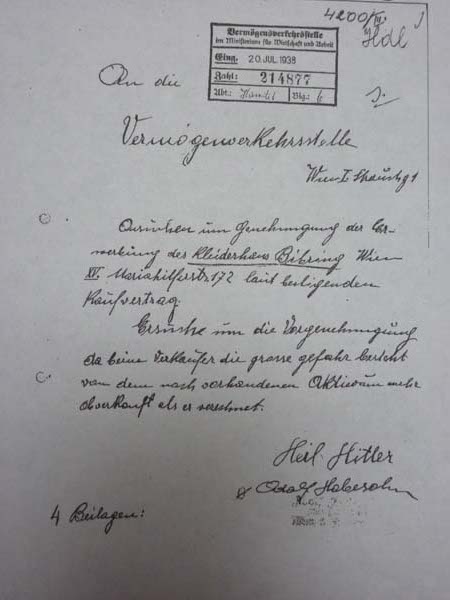 4200/III
Hdl
Vermögensverkehrsstelle
im Ministerium für Wirtschaft und Arbeit
Eing. 20 JUL 1938
Zahl: 214877
Abt.: Handel Blg.: 6
An die
Vermögenverkehrsstelle
Wien I
um Genehmigung der Er-
werbung der Kleiderhaus Bibring Wien
XV Mariahilferstr. 172 laut beiligenden
Kaufvertrag.
Ersuche um die Vorgenehmigung
da beim Verkäufer die grosse gefahr
von dem noch vorhandenen mehr
als er verechnet.
Heil Hitler
Adolf
4 Beilagen: